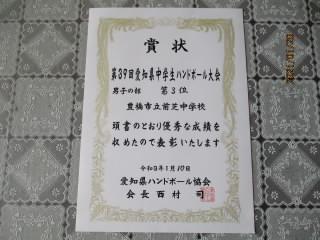 賞状
第39回愛知県中学生ハンドボール大会
男子の部 第3位
豊橋市立前芝中学校
頭書のとおり優秀な成績を
収めたので表彰いたします
令和8年1月10日
愛知県ハンドボール協会
会長 西村 司